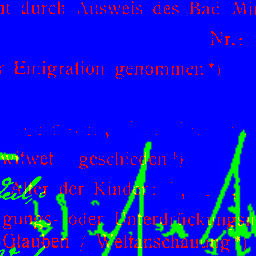 t durch Ausweis des Bad. Mi
Nr.:
Emigration genommen *)
witwet geschieden *)
Alter der Kinder:
gungs- oder Unterdrückungs
Glauben / Weltanschauung